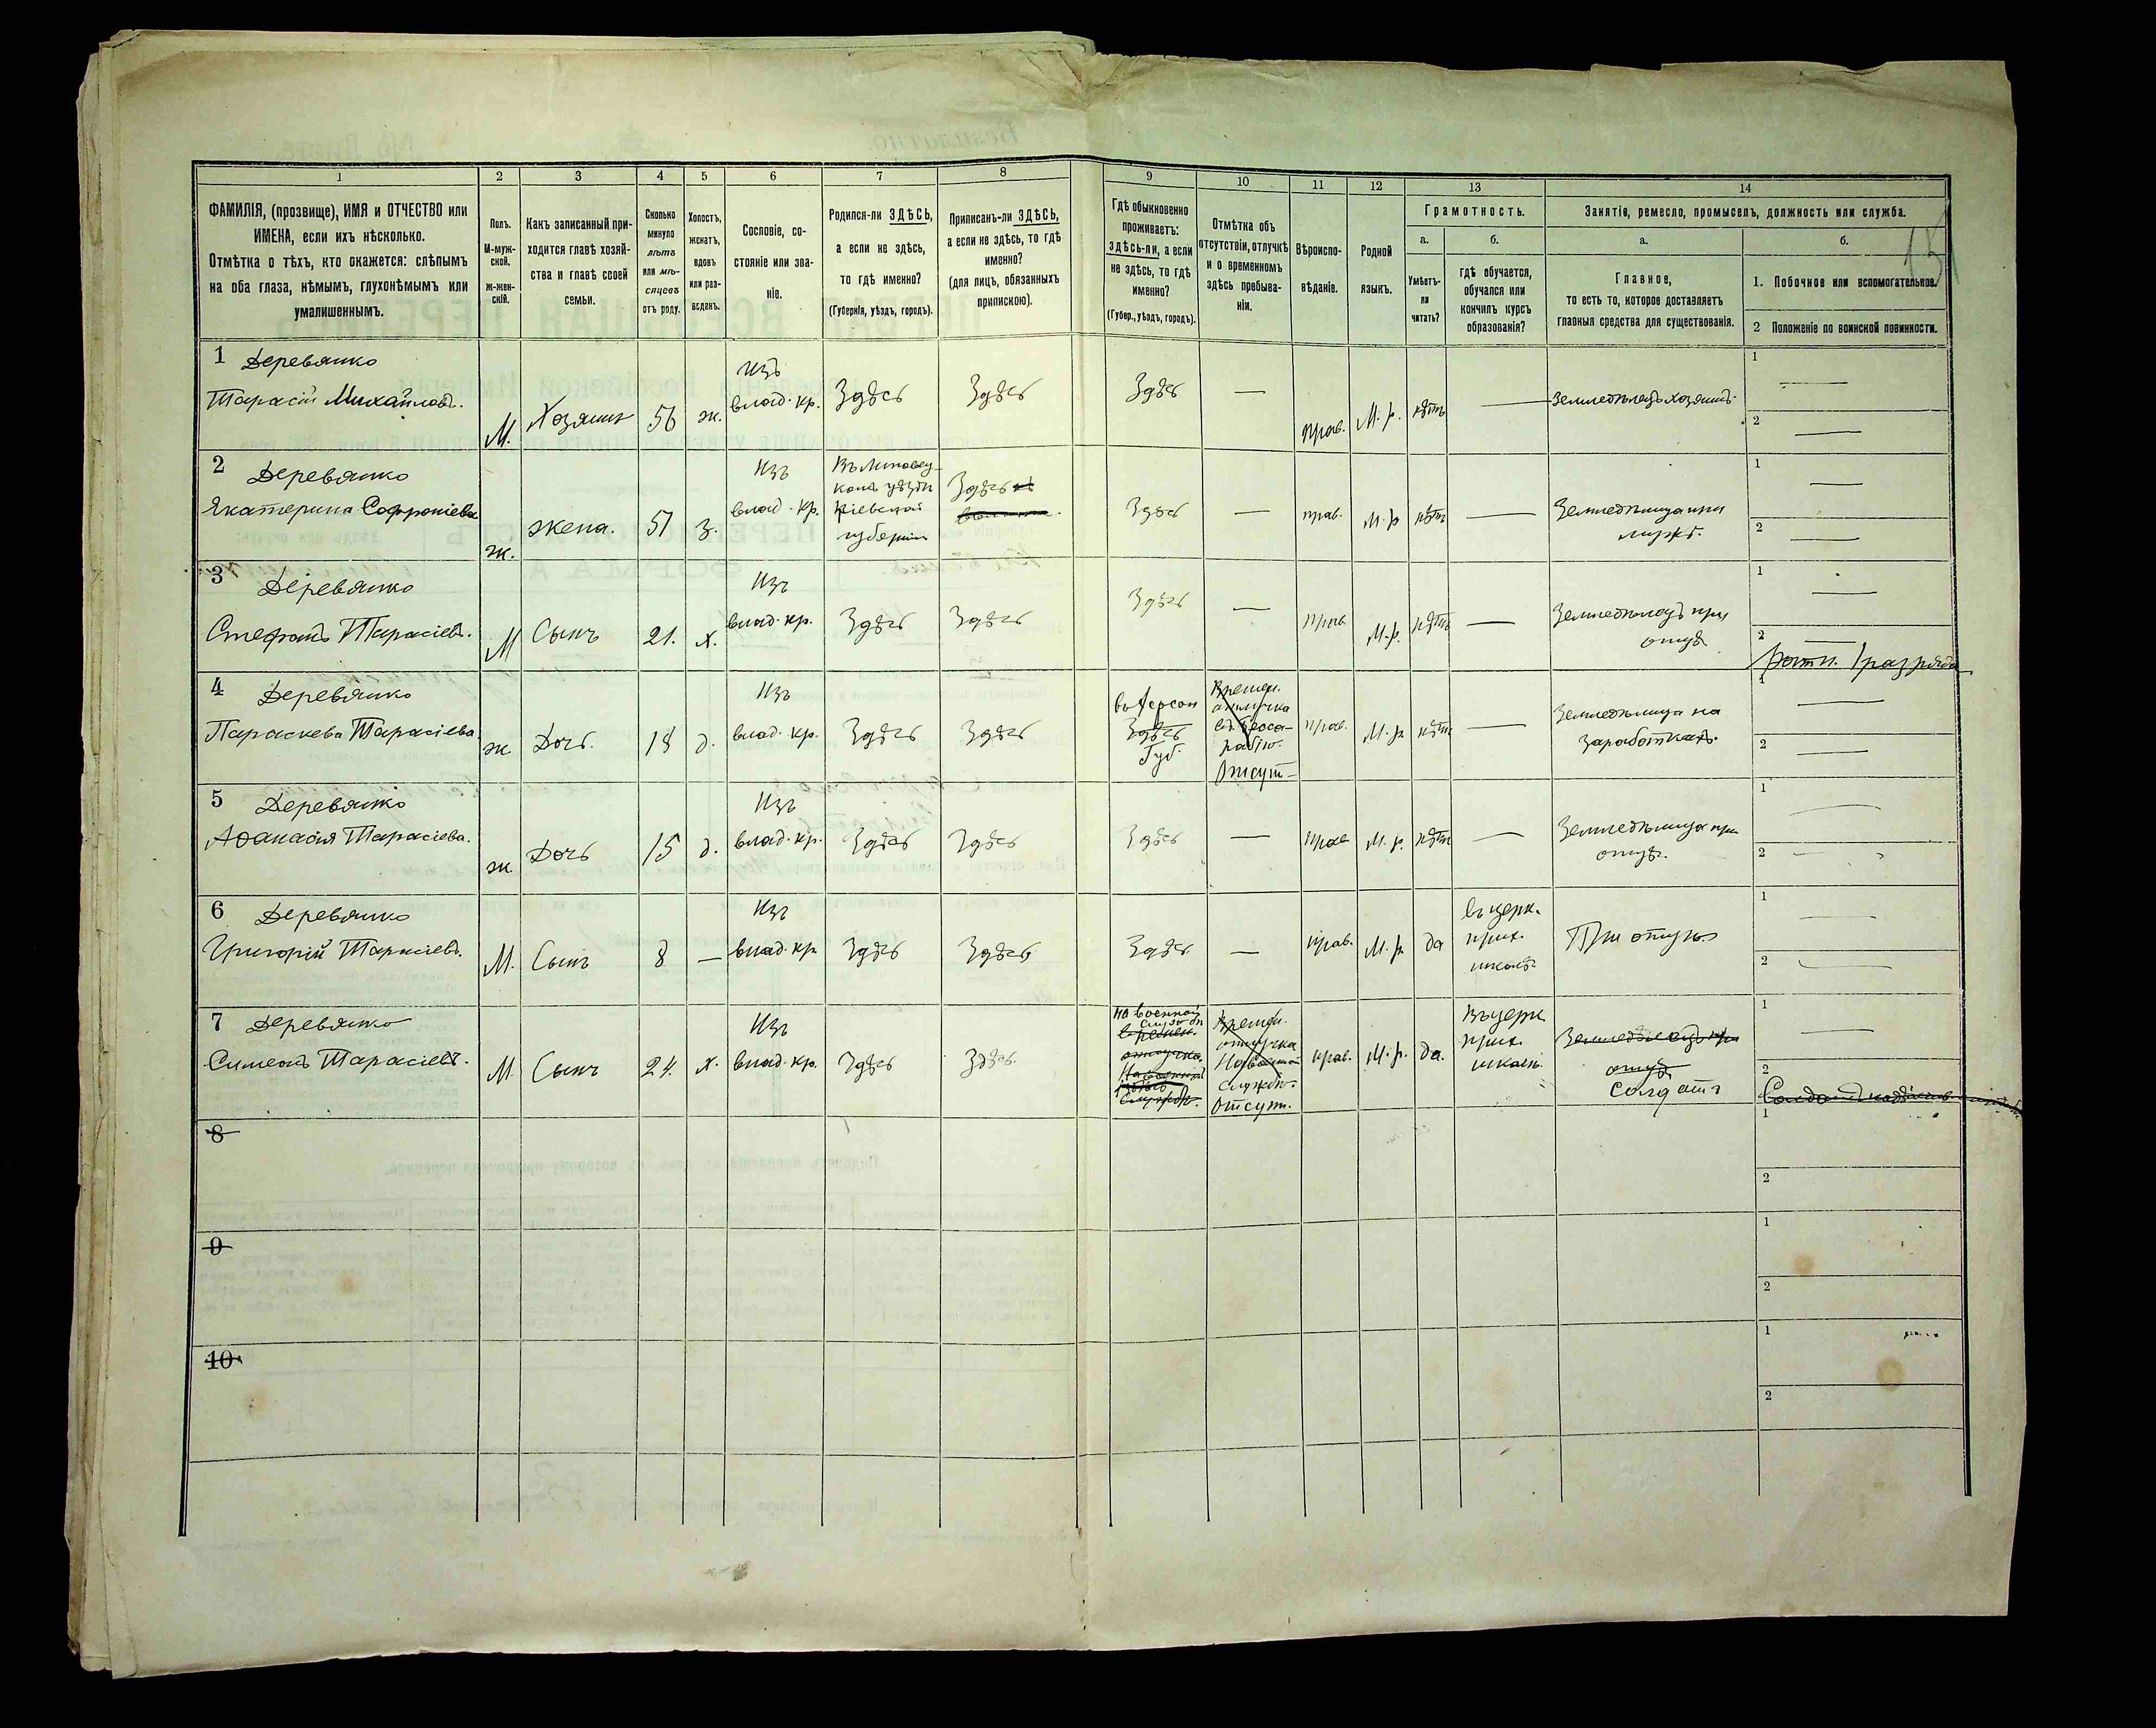 15
1
2
3
4
5
6
7
8
9
10
11
12
13
14
ФАМИЛІЯ, (прозвище), ИМЯ и ОТЧЕСТВО или
ИМЕНА, если ихъ нѣсколько.
Отмѣтка о тѣхъ, кто окажется: слѣпымъ
на оба глаза, нѣмымъ, глухонѣмымъ или
умалишеннымъ.
Полъ.
М-муж-
ской.
Ж-жен-
скій.
Какъ записанный при-
ходится главѣ хозяй-
ства и главѣ своей
семьи.
Сколько
минуло
лѣтъ
или мѣ-
сяцевъ
отъ роду.
Холостъ,
женатъ,
вдовъ
или раз-
веденъ.
Сословіе, со-
стояніе или зва-
ніе.
Родился-ли ЗДѢСЬ,
а если не здѣсь,
то гдѣ именно?
(Губернія, уѣздъ, городъ).
Приписанъ-ли ЗДѢСЬ,
а если не здѣсь, то гдѣ
именно?
(для лицъ, обязанныхъ
припискою).
Гдѣ обыкновенно
проживаетъ:
здѣсь-ли, а если
не здѣсь, то гдѣ
именно?
(Губер., уѣздъ, городъ).
Отмѣтка объ
отсутствіи, отлучкѣ
и о временномъ
здѣсь пребыва-
ніи.
Вѣроиспо-
вѣданіе.
Родной
языкъ.
Грамотность.
а.
Умѣетъ-
ли
читать?
б.
гдѣ обучается,
обучался или
кончилъ курсъ
образованія?
Занятіе, ремесло, промыселъ, должность или служба.
а.
Главное,
то есть то, которое доставляетъ
главныя средства для существованія.
б.
1. Побочное или вспомогательное.
2 Положеніе по воинской повинности.
1 Деревянко
Тарасій Михайловъ.
М.
Хозяинъ
56
ж.
Изъ
влад. кр.
Здѣсь
Здѣсь
Здѣсь
—
прав.
М. р.
нѣтъ
—
Земледѣлецъ хозяинъ
1
—
2
—
2 Деревянко
Екатерина Софроніева
ж.
жена.
51
з.
Изъ
влад. кр.
Въ Липовец-
комъ уѣздѣ
Кіевской
губерніи
Здѣсь
Здѣсь
—
прав.
М. р
нѣтъ
—
Земледѣлица при
мужѣ.
1
—
2
—
3 Деревянко
Стефанъ Тарасіевъ.
М
Сынъ
21.
х.
Изъ
влад. кр.
Здѣсь
Здѣсь
Здѣсь
—
прав
М. р.
нѣтъ
—
Земледѣлецъ при
отцѣ
1
—
2
—
Ратн. 1 разряда
4 Деревянко
Параскева Тарасіева
ж
Дочь.
18
д.
Изъ
влад. кр.
Здѣсь
Здѣсь
въ Херсон
Здѣсь
Губ.
Времен.
отлучка
Отсут—
прав.
М. р
нѣтъ
—
Земледѣлица на
заработкахъ.
1
—
2
—
5 Деревянко
Афанасія Тарасіева.
ж
Дочь
15
д.
Изъ
влад. кр.
Здѣсь
Здѣсь
Здѣсь
—
прав
М. р.
нѣтъ
—
Земледѣлица при
отцѣ.
1
—
2
—
6 Деревянко
Григорій Тарасіевъ.
М.
Сынъ
8
—
Изъ
влад. кр
Здѣсь
Здѣсь
Здѣсь
—
прав.
М. р
да
въ церк.
прих.
школѣ
При отцѣ
1
—
2
—
7 Деревянко
Симеонъ Тарасіевъ.
М
Сынъ
24.
х.
Изъ
влад. кр.
Здѣсь
Здѣсь.
на военной
службѣ
времен.
отлучка
На военной
службѣ.
Времен.
отлучка
На военной
службѣ.
Отсут.
прав.
М. р.
да.
Въ церк
прих.
школѣ.
Земледѣлецъ при
отцѣ
солдатъ
1
—
2
8
1
2
9
1
2
10
1
2